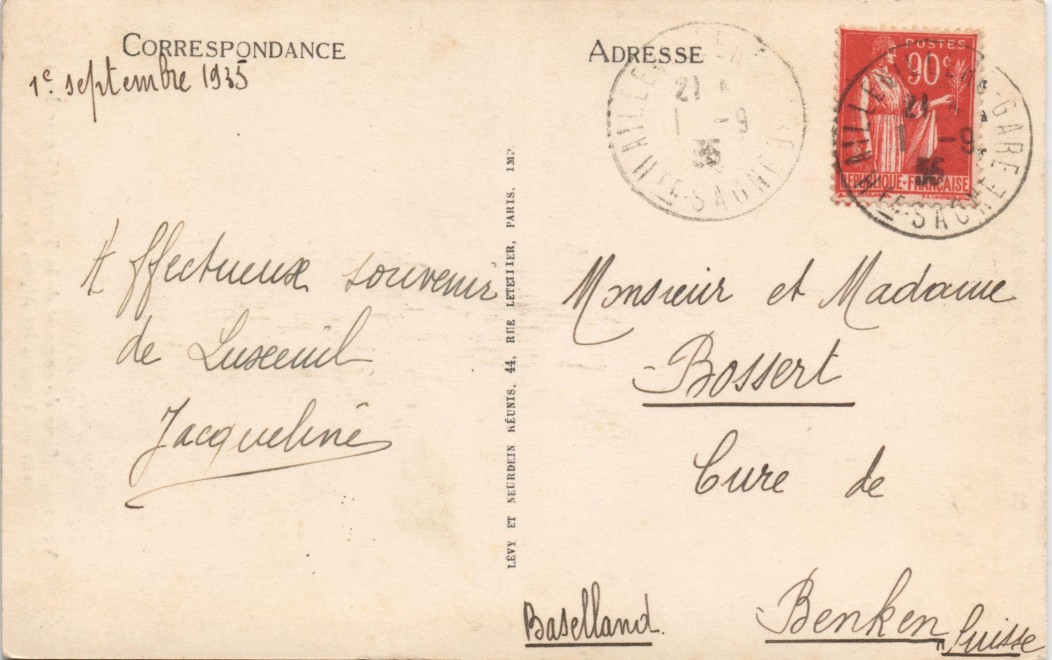 CORRESPONDANCE
1e septembre 1935
Affectueux souvenir
de Luxeuil
Jacqueline
LÉVY ET NEURDEIN RÉUNIS, 44, RUE LETELLIER, PARIS, IMP.
ADRESSE
21
1 -9
35
HTE SAONE
POSTES
90c
REPUBLIQUE-FRANÇAISE
GARE
21
1 -9
35
HTE SAONE
Monsieur et Madame
Bossert
Cure de
Benken, Suisse
Baselland.